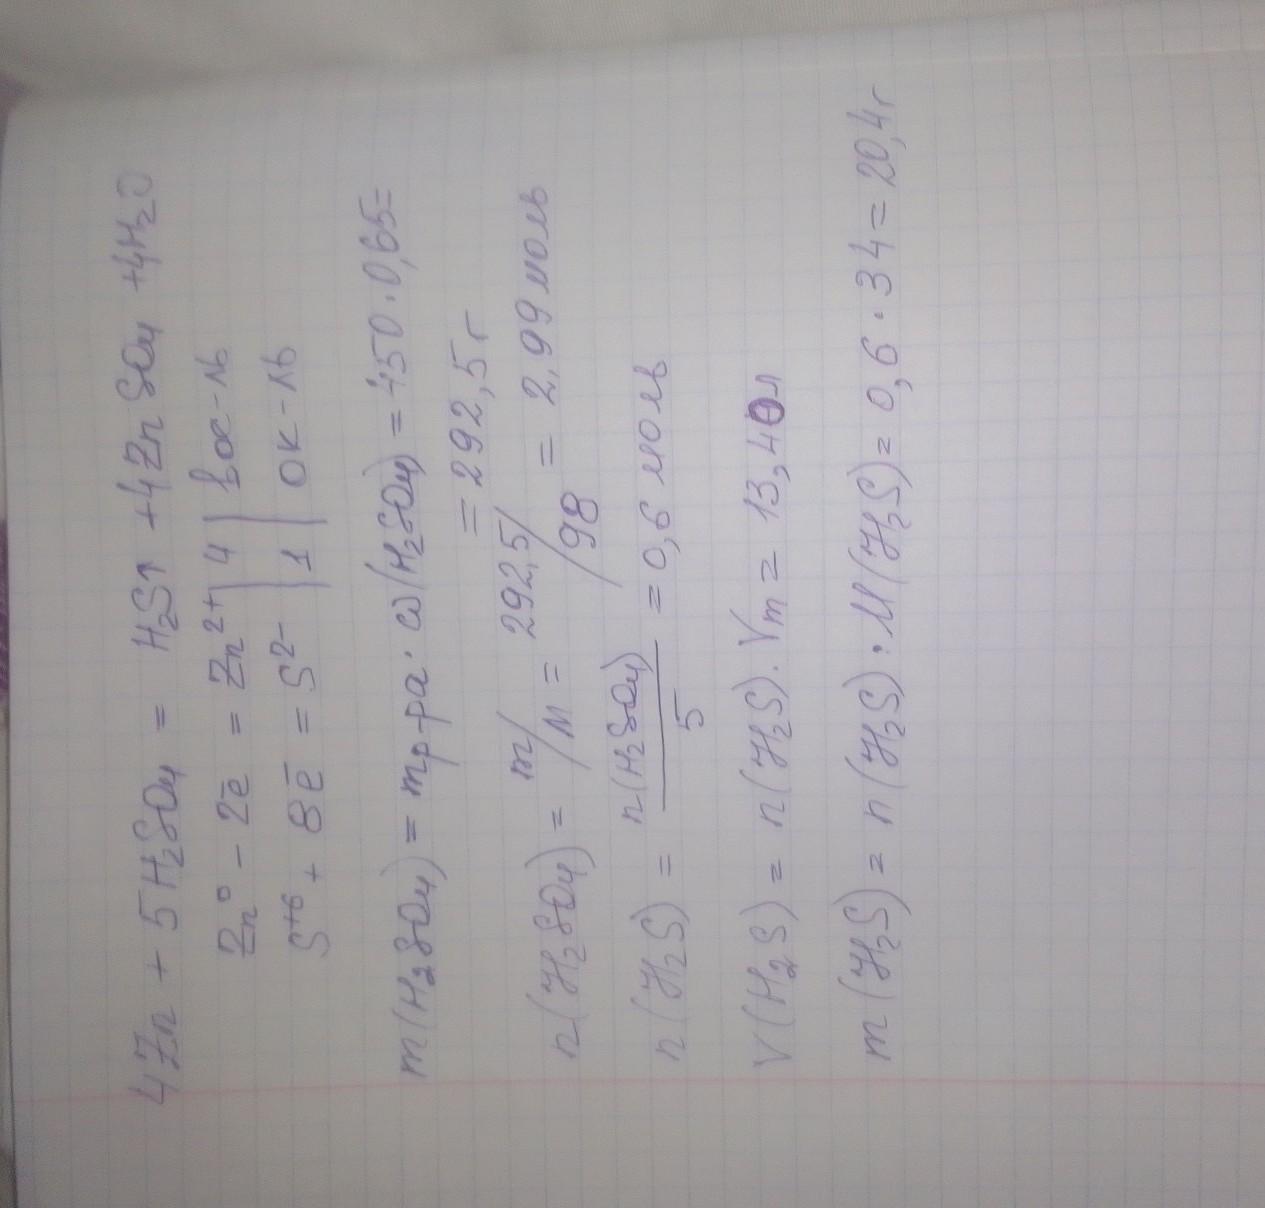 4Zn + 5H₂SO₄ = H₂S↑ + 4ZnSO₄ + 4H₂O
Zn⁰ - 2ē = Zn²⁺ | 4 | вос-ль
S⁺⁶ + 8ē = S²⁻ | 1 | ок-ль
m(H₂SO₄) = mр-ра · ω(H₂SO₄) = 450 · 0,65 =
= 292,5 г
n(H₂SO₄) = m/M = 292,5/98 = 2,99 моль
n(H₂S) = n(H₂SO₄)/5 = 0,6 моль
V(H₂S) = n(H₂S) · Vm = 13,40л
m(H₂S) = n(H₂S) · M(H₂S) = 0,6 · 34 = 20,4г